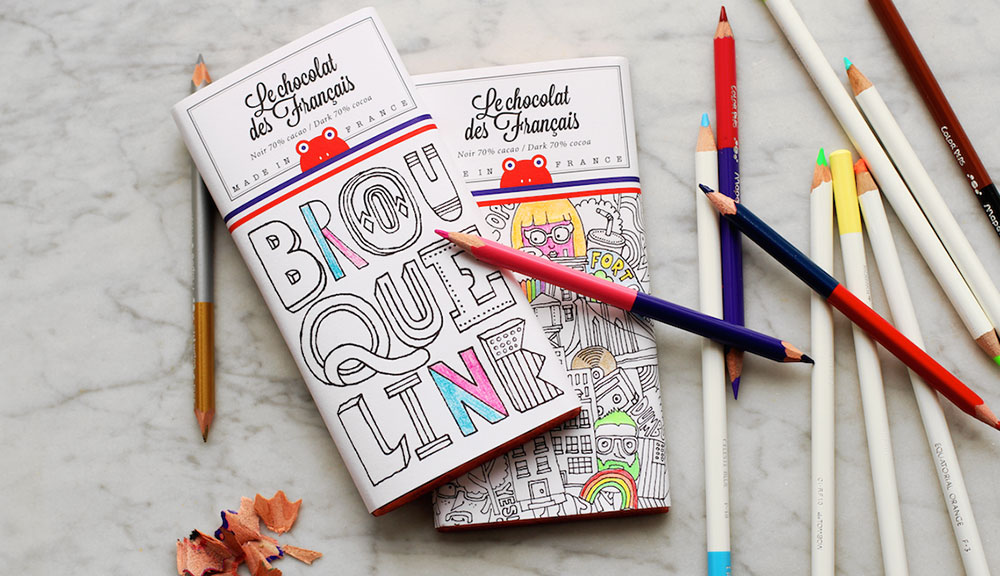 Le chocolat
des Français
Noir 70% cacao / Dark 70% cocoa
MADE IN FRANCE
BROU
QUE
LINK
Le chocolat
des Français
Noir 70% cacao / Dark 70% cocoa
E IN FRANCE
FORT
YES!
COLOR'PEPS
COLOR'PEPS
EQUATORIAL ORANGE F-3